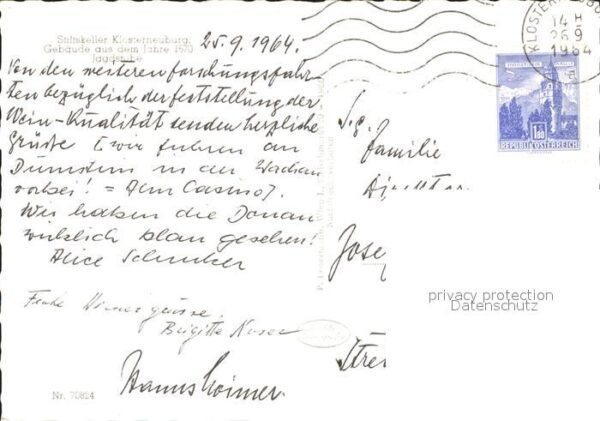 Stiftskeller Klosterneuburg,
Gebäude aus dem Jahre 1670
Jagdstube
25.9.1964.
Von den weiteren Forschungsfahr-
ten bezüglich der Feststellung der
Wein-Qualität senden herzliche
Grüße
Wir fuhren an
Dürnstein in der Wachau
vorbei!
Wir haben die Donau
wirklich blau gesehen!
Alice
Frohe
Brigitte
Nr. 70824
KLOSTERN
14 H
26.9
1964
REPUBLIK ÖSTERREICH
S.g.
Familie
Jose
Stre
privacy protection
Datenschutz